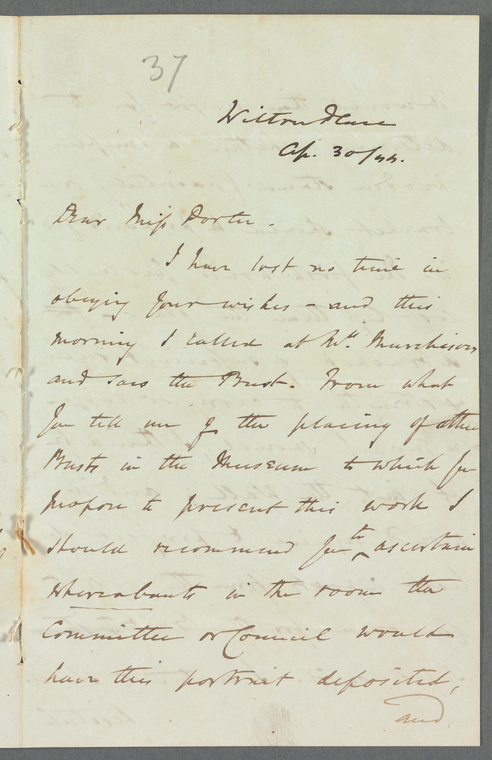 37
Wilton Place
Ap. 30/44.
Dear Miss Porter.
I have lost no time in
obeying your wishes – and this
morning I called at Mrs. Murchisons
and saw the Bust. From what
you tell me of the placing of other
Busts in the Museum to which you
propose to present this work I
should recommend you to ascertain
whereabouts in the room the
Committee or Council would
have this portrait deposited,
and